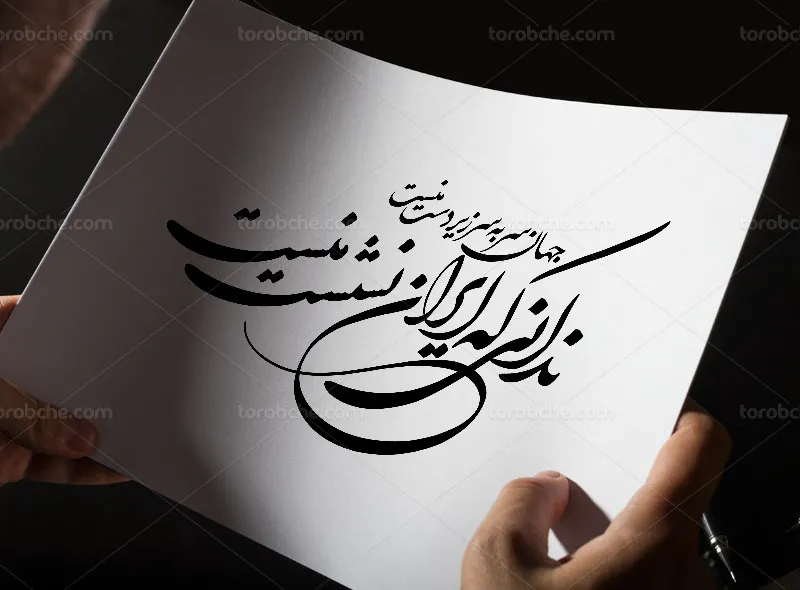 torobche.com torobche.com torobche.com
ندانی که ایران نشست منست
جهان سر به سر زیر دست منست
torobche.com torobche.com torobche.com
torobche.com torobche.com torobche.com